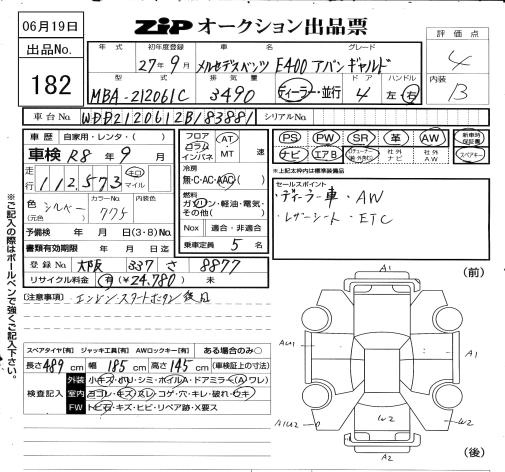 06月19日
出品No.
182
ZIP オークション出品票
評価点
4
内装
B
年式 初年度登録 車名 グレード
27年9月 メルセデスベンツ E400 アバンギャルド
型式 排気量 ドア ハンドル
MBA-212061C 3490 ディーラー・並行 4 左・右
車台No. WDD2120612B183881 シリアルNo.
車歴 自家用・レンタ・( )
車検 R8年9月
走行 112,573 キロ マイル
色 (元色) シルバー カラーNo. 775 内装色
予備検 年 月 日(3・8)No.
書類有効期限 年 月 日迄
登録No. 大阪 337 さ 8877
リサイクル料金 有(¥24,780) 未
フロア コラム インパネ AT・MT 速
冷房 無・C・AC・AAC
燃料 ガソリン・軽油・電気・その他( )
Nox 適合・非適合
乗車定員 5名
PS PW SR 革 AW 新車時保証書
ナビ エアB 社外ナビ 社外AW スペアキー
※上記太枠内は標準装備品
セールスポイント
・ディーラー車・AW
・レザーシート・ETC
[注意事項] エンジンスタートボタン後日
スペアタイヤ[有] ジャッキ工具[有] AWロックキー[有] ある場合のみ○
長さ489cm 幅185cm 高さ145cm (車検証上の寸法)
検査記入
外装 小キズ・ホリ・シミ・ホイルA・ドアミラー(A)ワレ)
室内 ヨゴレ・キズ・スレ・コゲ・穴・キレ・破れ・ウキ
FW トビ石・キズ・ヒビ・リペア跡・X要ス
※ご記入の際はボールペンで強くご記入下さい。
(前)
A1
AU1
A1
A1U2
W2
W2
A2
(後)